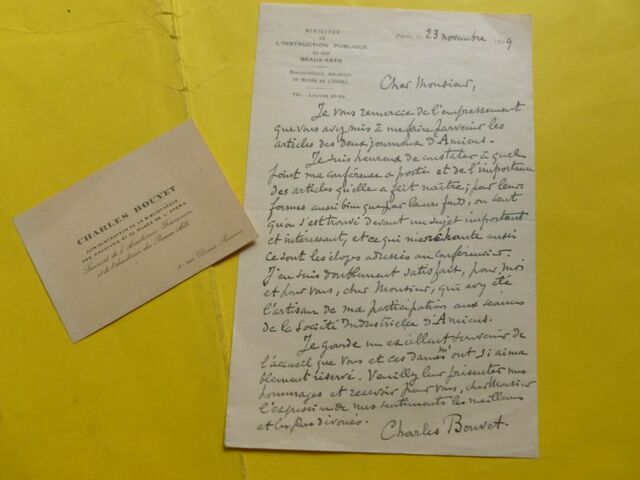 MINISTÈRE
DE
L'INSTRUCTION PUBLIQUE
ET DES
BEAUX-ARTS
BIBLIOTHÈQUE, ARCHIVES
ET MUSÉE DE L'OPÉRA
TÉL. : LOUVRE
Paris, le 23 novembre 19 9
Cher Monsieur,
Je vous remercie de l'empressement
que vous avez mis à me faire parvenir les
articles des deux journaux d'Amiens.
Je suis heureux de constater à quel
point ma conférence a porté et de l'importance
des articles qu'elle a fait naître ; par leurs
formes aussi bien que par leur fond, on sent
qu'on s'est trouvé devant un sujet important
et intéressant, et ce qui m'enchante aussi
ce sont les éloges adressés au conférencier.
J'en suis doublement satisfait, pour moi
et pour vous, cher Monsieur, qui avez été
l'artisan de ma participation aux séances
de la Société Industrielle d'Amiens.
Je garde un excellent souvenir de
l'accueil que vous et ces dames m'ont si aima
blement réservé. Veuillez leur présenter mes
hommages et recevoir pour vous, cher Monsieur
l'expression de mes sentiments les meilleurs
et les plus dévoués.
Charles Bouvet
CHARLES BOUVET
ADMINISTRATEUR DE LA BIBLIOTHÈQUE
DES ARCHIVES ET DU MUSÉE DE L'OPÉRA
Lauréat de l'Académie Française
et de l'Académie des Beaux-Arts
rue